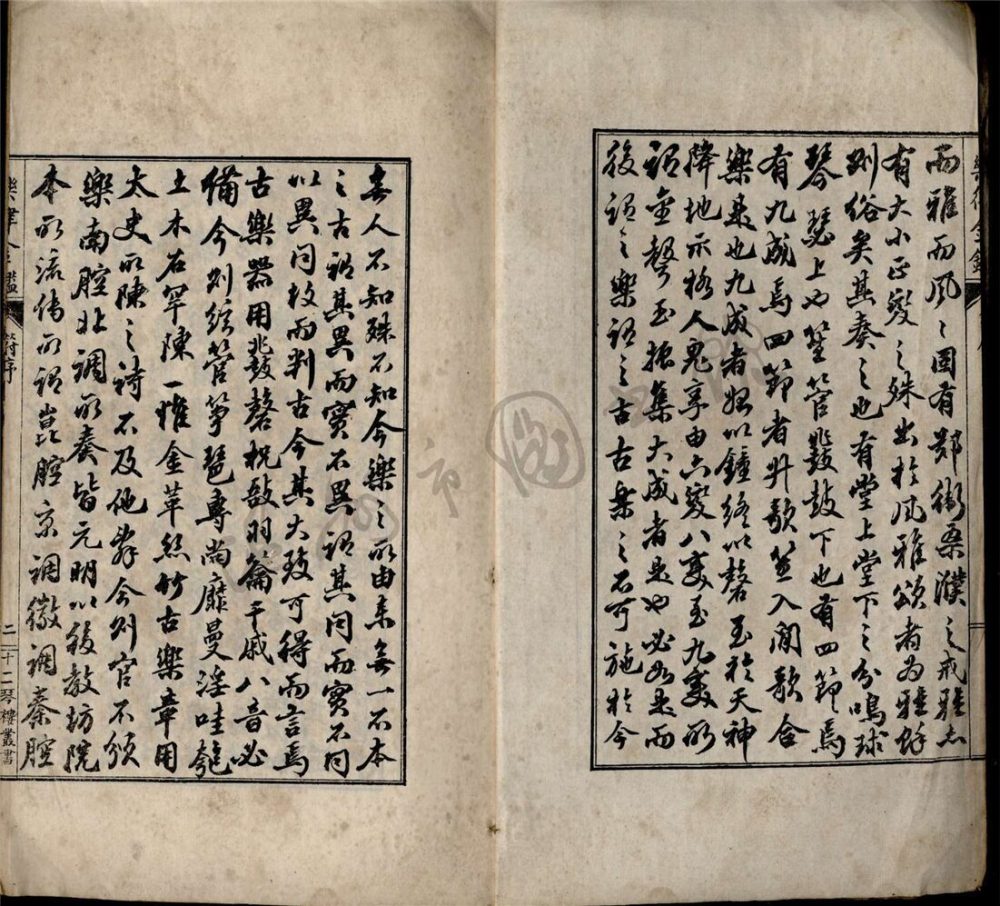 而雅而風〻固有鄭衛桑濮之戒雅亦
有大小正變之殊出於風雅頌者為雅舛
則俗矣其奏之也有堂上堂下之分鳴球
琴瑟上也笙管鼗鼓下也有四節焉
有九成焉四節者升歌笙入間歌合
樂是也九成者始以鐘終以磬至於天神
降地示格人鬼享由六變八變至九變所
謂金聲玉振集大成者是也必如是而
後謂之樂謂之古古樂之不可施於今
夫人不知殊不知今樂之所由來無一不本
之古謂其異而實不異謂其同而實不同
以異同校而判古今其大致可得而言焉
古樂器用鼗鼓磬柷敔羽籥干戚八音必
備今則絃管箏琶專尚靡曼淫哇匏
土木石罕陳一惟金革絲竹古樂章用
太史所陳之詩不及他辭今則官不領
樂南腔北調所奏皆元明以後教坊院
本所流傳所謂崑腔京調徽調秦腔
樂律金鑑
序
二
十二琴樓叢書